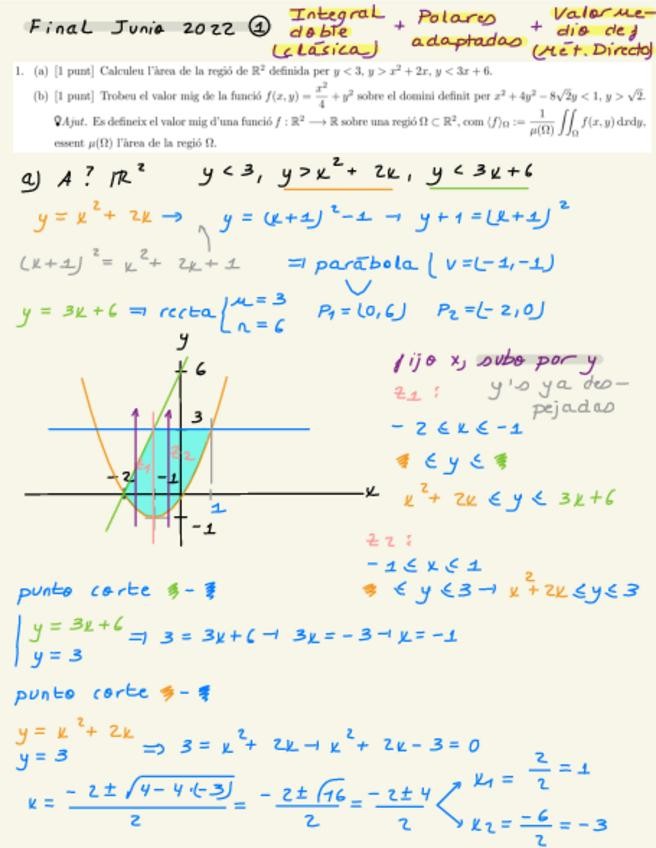 Final Junio 2022 ① Integral doble (clásica) + Polares adaptadas + Valor medio de f (Mét. Directo)
1. (a) [1 punt] Calculeu l'àrea de la regió de ℝ² definida per y < 3, y > x² + 2x, y < 3x + 6.
(b) [1 punt] Trobeu el valor mig de la funció f(x, y) = x²/4 + y² sobre el domini definit per x² + 4y² − 8√2y < 1, y > √2.
Ajut. Es defineix el valor mig d'una funció f : ℝ² ⟶ ℝ sobre una regió Ω ⊂ ℝ², com ⟨f⟩_Ω := 1/μ(Ω) ∬_Ω f(x, y) dxdy,
essent μ(Ω) l'àrea de la regió Ω.
a) A? ℝ² y < 3, y > x² + 2x, y < 3x + 6
y = x² + 2x → y = (x+1)² − 1 → y + 1 = (x+1)²
(x+1)² = x² + 2x + 1 ⇒ parábola (V = (−1,−1)
y = 3x + 6 ⇒ recta { m = 3 P₁ = (0,6) P₂ = (−2,0)
n = 6
y
6
3
z1 z2
−2 −1
x
1
−1
fijo x, subo por y
y's ya des-
pejadas
z1:
−2 ≤ x ≤ −1
≤ y ≤
x² + 2x ≤ y ≤ 3x + 6
z2:
−1 ≤ x ≤ 1
≤ y ≤ 3 → x² + 2x ≤ y ≤ 3
punto corte -
y = 3x + 6 ⇒ 3 = 3x + 6 → 3x = −3 → x = −1
y = 3
punto corte -
y = x² + 2x ⇒ 3 = x² + 2x → x² + 2x − 3 = 0
y = 3
x = (−2 ± √(4 − 4·(−3)))/2 = (−2 ± √16)/2 = (−2 ± 4)/2
x1 = 2/2 = 1
x2 = −6/2 = −3